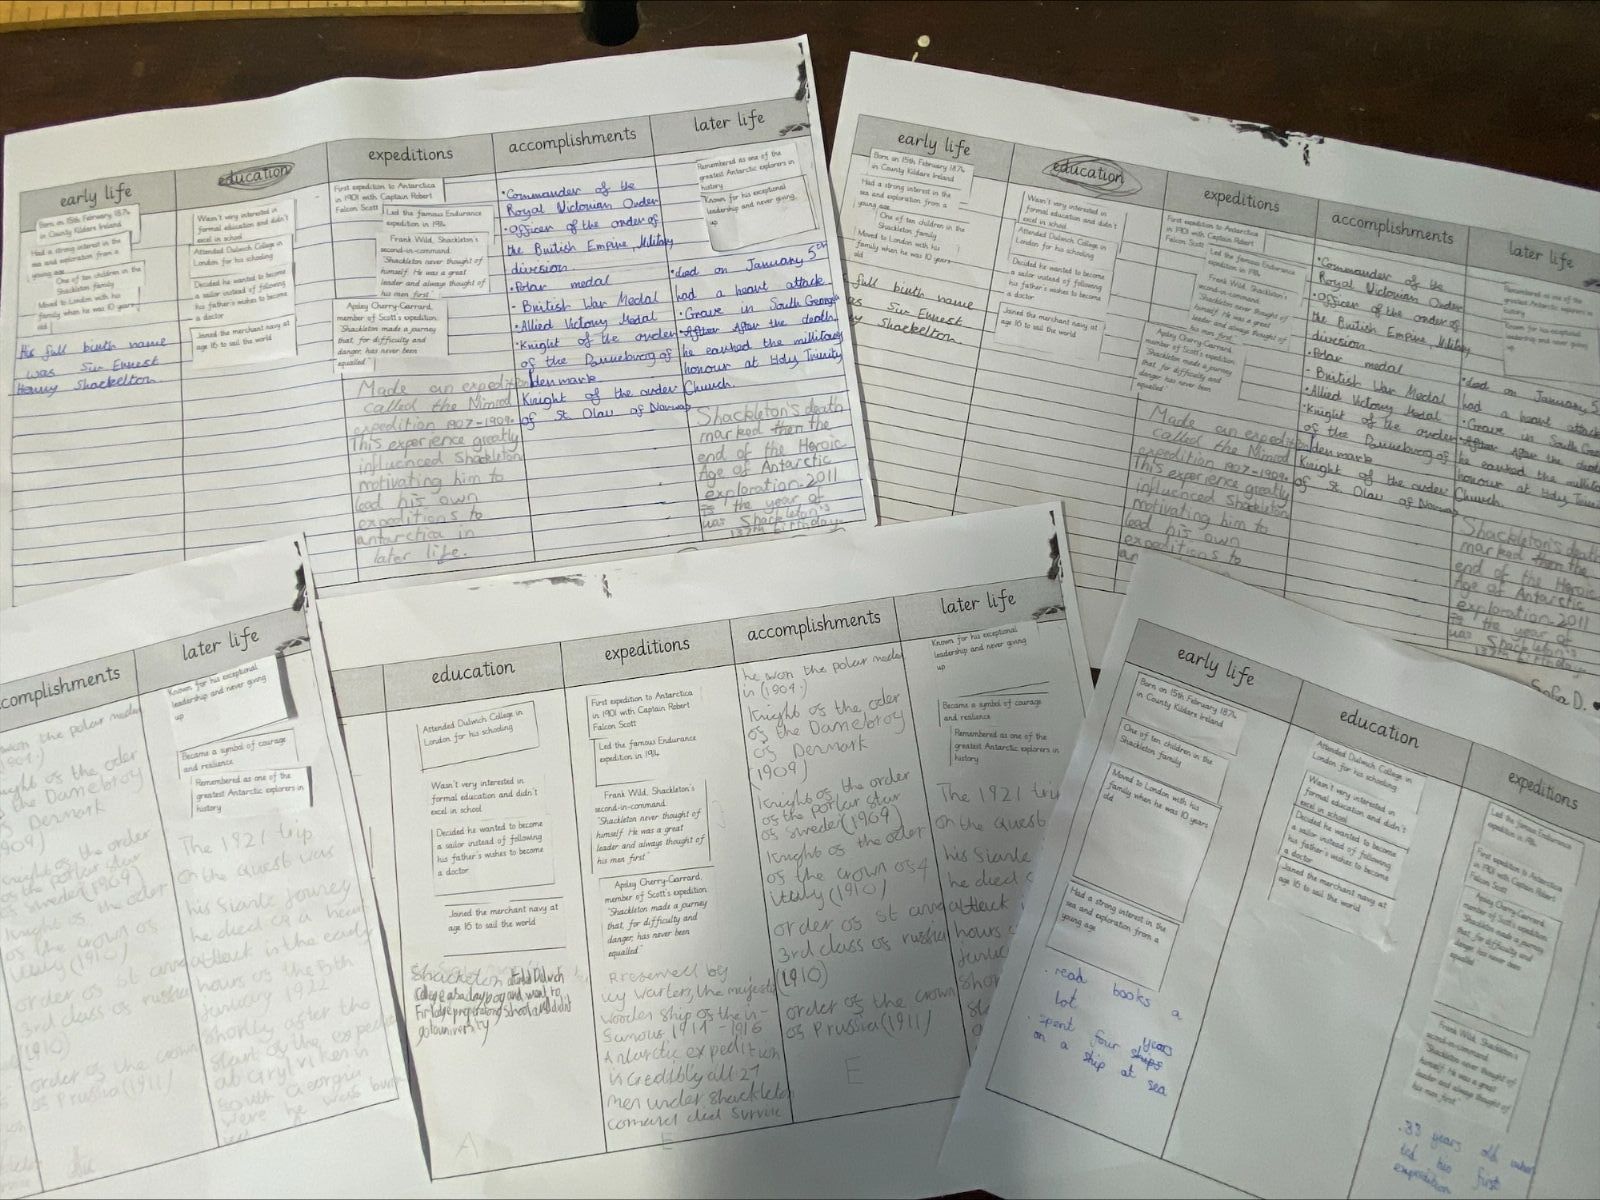 early life
Born on 15th February 1874
in County Kildare Ireland
Had a strong interest in the
sea and exploration from a
young age
One of ten children in the
Shackleton family
Moved to London with his
family when he was 10 years
old
His full birth name
was Sir Ernest
Henry Shackelton
education
Wasn't very interested in
formal education and didn't
excel in school
Attended Dulwich College in
London for his schooling
Decided he wanted to become
a sailor instead of following
his father's wishes to become
a doctor
Joined the merchant navy at
age 16 to sail the world
expeditions
First expedition to Antarctica
in 1901 with Captain Robert
Falcon Scott
Led the famous Endurance
expedition in 1914
Frank Wild, Shackleton's
second-in-command:
"Shackleton never thought of
himself. He was a great
leader and always thought of
his men first"
Apsley Cherry-Garrard,
member of Scott's expedition:
"Shackleton made a journey
that, for difficulty and
danger, has never been
equalled"
Made an expedition
called the Nimrod
expedition 1907-1909.
This experience greatly
influenced Shackleton
motivating him to
lead his own
expeditions to
antarctica in
later life.
accomplishments
•Commander of the
Royal Victorian Order
•Officer of the order of
the British Empire, Military
division
•Polar medal
•British War Medal
•Allied Victory Medal
•Knight of the order
of the Danneburg of
denmark
Knight of the order
of St. Olav of Norway
later life
Remembered as one of the
greatest Antarctic explorers in
history
Known for his exceptional
leadership and never giving
up
•died on January 5th
had a heart attack
•Grave in South Georgia
•After After the death,
he earned the military
honour at Holy Trinity
Church.
Shackleton's death
marked then the
end of the Heroic
Age of Antarctic
exploration. 2011
is the year of
was Shackleton's
137th birthday
early life
Born on 15th February 1874
in County Kildare Ireland
Had a strong interest in the
sea and exploration from a
young age
One of ten children in the
Shackleton family
Moved to London with his
family when he was 10 years
old
full birth name
as Sir Ernest
Shackelton
education
Wasn't very interested in
formal education and didn't
excel in school
Attended Dulwich College in
London for his schooling
Decided he wanted to become
a sailor instead of following
his father's wishes to become
a doctor
Joined the merchant navy at
age 16 to sail the world
expeditions
First expedition to Antarctica
in 1901 with Captain Robert
Falcon Scott
Led the famous Endurance
expedition in 1914
Frank Wild, Shackleton's
second-in-command:
"Shackleton never thought of
himself. He was a great
leader and always thought of
his men first"
Apsley Cherry-Garrard,
member of Scott's expedition:
"Shackleton made a journey
that, for difficulty and
danger, has never been
equalled"
Made an expedition
called the Nimrod
expedition 1907-1909.
This experience greatly
influenced Shackleton
motivating him to
lead his own
expeditions to
an
accomplishments
•Commander of the
Royal Victorian Order
•Officer of the order of
the British Empire, Military
division
•Polar medal
•British War Medal
•Allied Victory Medal
•Knight of the order
of the Danneburg of
denmark
Knight of the order
of St. Olav of Norway
later life
Remembered as one of the
greatest Antarctic explorers in
history
Known for his exceptional
leadership and never giving
up
•died on January 5
had a heart attack
•Grave in South
•After After the death
he earned the
honour at Holy
Church.
Shackleton's death
marked then the
end of the Heroic
Age of Antarctic
exploration. 2011
is the year of
was Shackleton's
137th birthday
Sofia D.
complishments
won the polar medal
1909.)
night of the oder
the Damebroy
of Denmark
1909)
Knight of the order
of the Polar star
of Sweden(1909)
Knight of the oder
of the crown of
Itialy (1910)
order of st anna
3rd class of russia
(1910)
order of the crown
of Prussia (1911)
later life
Known for his exceptional
leadership and never giving
up
Became a symbol of courage
and resilience
Remembered as one of the
greatest Antarctic explorers in
history
The 1921 trip
on the quest was
his Sianle Jouney
he died of a heart
attack in the early
hours of the 5th
January 1922
shortly after the
start of the
at Grytviken in
South Georgia
were he was
education
Attended Dulwich College in
London for his schooling
Wasn't very interested in
formal education and didn't
excel in school
Decided he wanted to become
a sailor instead of following
his father's wishes to become
a doctor
Joined the merchant navy at
age 16 to sail the world
Shackleton attended Dulwich
College as a day boy and went to
Fir lodge preparatory school and didnt
go to university
A
expeditions
First expedition to Antarctica
in 1901 with Captain Robert
Falcon Scott
Led the famous Endurance
expedition in 1914
Frank Wild, Shackleton's
second-in-command:
"Shackleton never thought of
himself. He was a great
leader and always thought of
his men first"
Apsley Cherry-Garrard,
member of Scott's expedition:
"Shackleton made a journey
that, for difficulty and
danger, has never been
equalled"
Preserved by
icy warters, the majestic
wooden ship of the in-
famous 1914-1916
Antarctic expedition
incredibly all 27
men under Shackleton
comand died Survive
E
accomplishments
he won the polar medal
in (1909.)
Knight of the oder
of the Damebroy
of Denmark
(1909)
Knight of the order
of the Portar star
of Sweden(1909)
Knight of the oder
of the crown of
Itialy (1910)
order of st anna
3rd class of russia
(1910)
order of the crown
of Prussia (1911)
E
later life
Known for his exceptional
leadership and never giving
up
Became a symbol of courage
and resilience
Remembered as one of the
greatest Antarctic explorers in
history
The 1921 trip
on the quest
his Sianle
he died
attack
hours
early life
Born on 15th February 1874
in County Kildare Ireland
One of ten children in the
Shackleton family
Moved to London with his
family when he was 10 years
old
Had a strong interest in the
sea and exploration from a
young age
. read books a
lot
. spent four ships years
on a ship at sea
education
Attended Dulwich College in
London for his schooling
Wasn't very interested in
formal education and didn't
excel in school
Decided he wanted to become
a sailor instead of following
his father's wishes to become
a doctor
Joined the merchant navy at
age 16 to sail the world
expeditions
Led the famous Endurance
expedition in 1914
First expedition to Antarctica
in 1901 with Captain Robert
Falcon Scott
Apsley Cherry-Garrard,
member of Scott's expedition:
"Shackleton made a journey
that, for difficulty and
danger, has never been
equalled"
Frank Wild, Shackleton's
second-in-command:
"Shackleton never thought of
himself. He was a great
leader and always thought of
his men first"
. 33 years old when
led his first
expedition